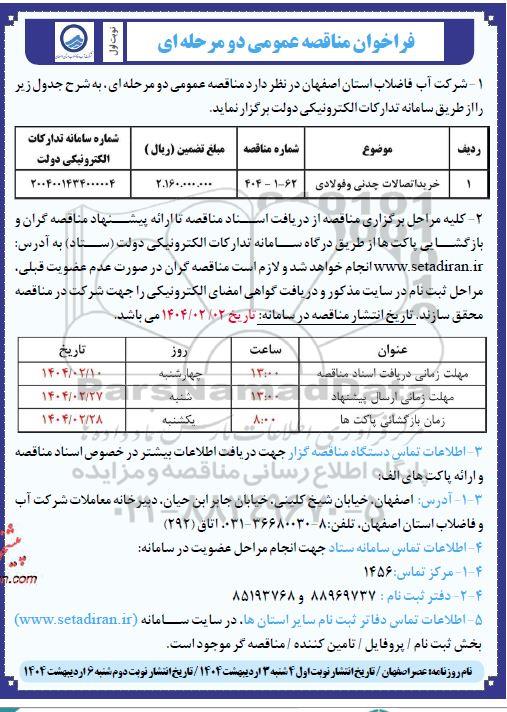 فراخوان مناقصه عمومی دو مرحله ای
نوبت اول
۱- شرکت آب فاضلاب استان اصفهان در نظر دارد مناقصه عمومی دو مرحله ای، به شرح جدول زیر
را از طریق سامانه تدارکات الکترونیکی دولت برگزار نماید.
ردیف موضوع شماره مناقصه مبلغ تضمین (ریال) شماره سامانه تدارکات الکترونیکی دولت
۱ خرید اتصالات چدنی و فولادی ۶۲-۱-۴۰۴ ۲.۱۶۰.۰۰۰.۰۰۰ ۲۰۰۴۰۰۱۴۳۴۰۰۰۰۰۴
۲- کلیه مراحل برگزاری مناقصه از دریافت اسناد مناقصه تا ارائه پیشنهاد مناقصه گران و
بازگشایی پاکت ها از طریق درگاه سامانه تدارکات الکترونیکی دولت (ستاد) به آدرس:
www.setadiran.ir انجام خواهد شد و لازم است مناقصه گران در صورت عدم عضویت قبلی،
مراحل ثبت نام در سایت مذکور و دریافت گواهی امضای الکترونیکی را جهت شرکت در مناقصه
محقق سازند. تاریخ انتشار مناقصه در سامانه: تاریخ ۱۴۰۴/۰۲/۰۲ می باشد.
عنوان ساعت روز تاریخ
مهلت زمانی دریافت اسناد مناقصه ۱۳:۰۰ چهارشنبه ۱۴۰۴/۰۲/۱۰
مهلت زمانی ارسال پیشنهاد ۱۳:۰۰ شنبه ۱۴۰۴/۰۲/۲۷
زمان بازگشائی پاکت ها ۸:۰۰ یکشنبه ۱۴۰۴/۰۲/۲۸
۳- اطلاعات تماس دستگاه مناقصه گزار جهت دریافت اطلاعات بیشتر در خصوص اسناد مناقصه
و ارائه پاکت های الف:
۳-۱- آدرس: اصفهان، خیابان شیخ کلینی، خیابان جابر ابن حیان، دبیرخانه معاملات شرکت آب
و فاضلاب استان اصفهان، تلفن: ۸-۳۶۶۸۰۰۳۰-۰۳۱، اتاق (۲۹۲)
۴- اطلاعات تماس سامانه ستاد جهت انجام مراحل عضویت در سامانه:
۴-۱- مرکز تماس: ۱۴۵۶
۴-۲- دفتر ثبت نام: ۸۸۹۶۹۷۳۷ و ۸۵۱۹۳۷۶۸
۵- اطلاعات تماس دفاتر ثبت نام سایر استان ها، در سایت سامانه (www.setadiran.ir)
بخش ثبت نام / پروفایل / تامین کننده / مناقصه گر موجود است.
نام روزنامه: عصر اصفهان / تاریخ انتشار نوبت اول ۴ شنبه ۳ اردیبهشت ۱۴۰۴ / تاریخ انتشار نوبت دوم شنبه ۶ اردیبهشت ۱۴۰۴
ParsNamadData
پایگاه اطلاع رسانی مناقصه و مزایده
۰۲۱-۸۸۳۴۹۶۷۰-۵